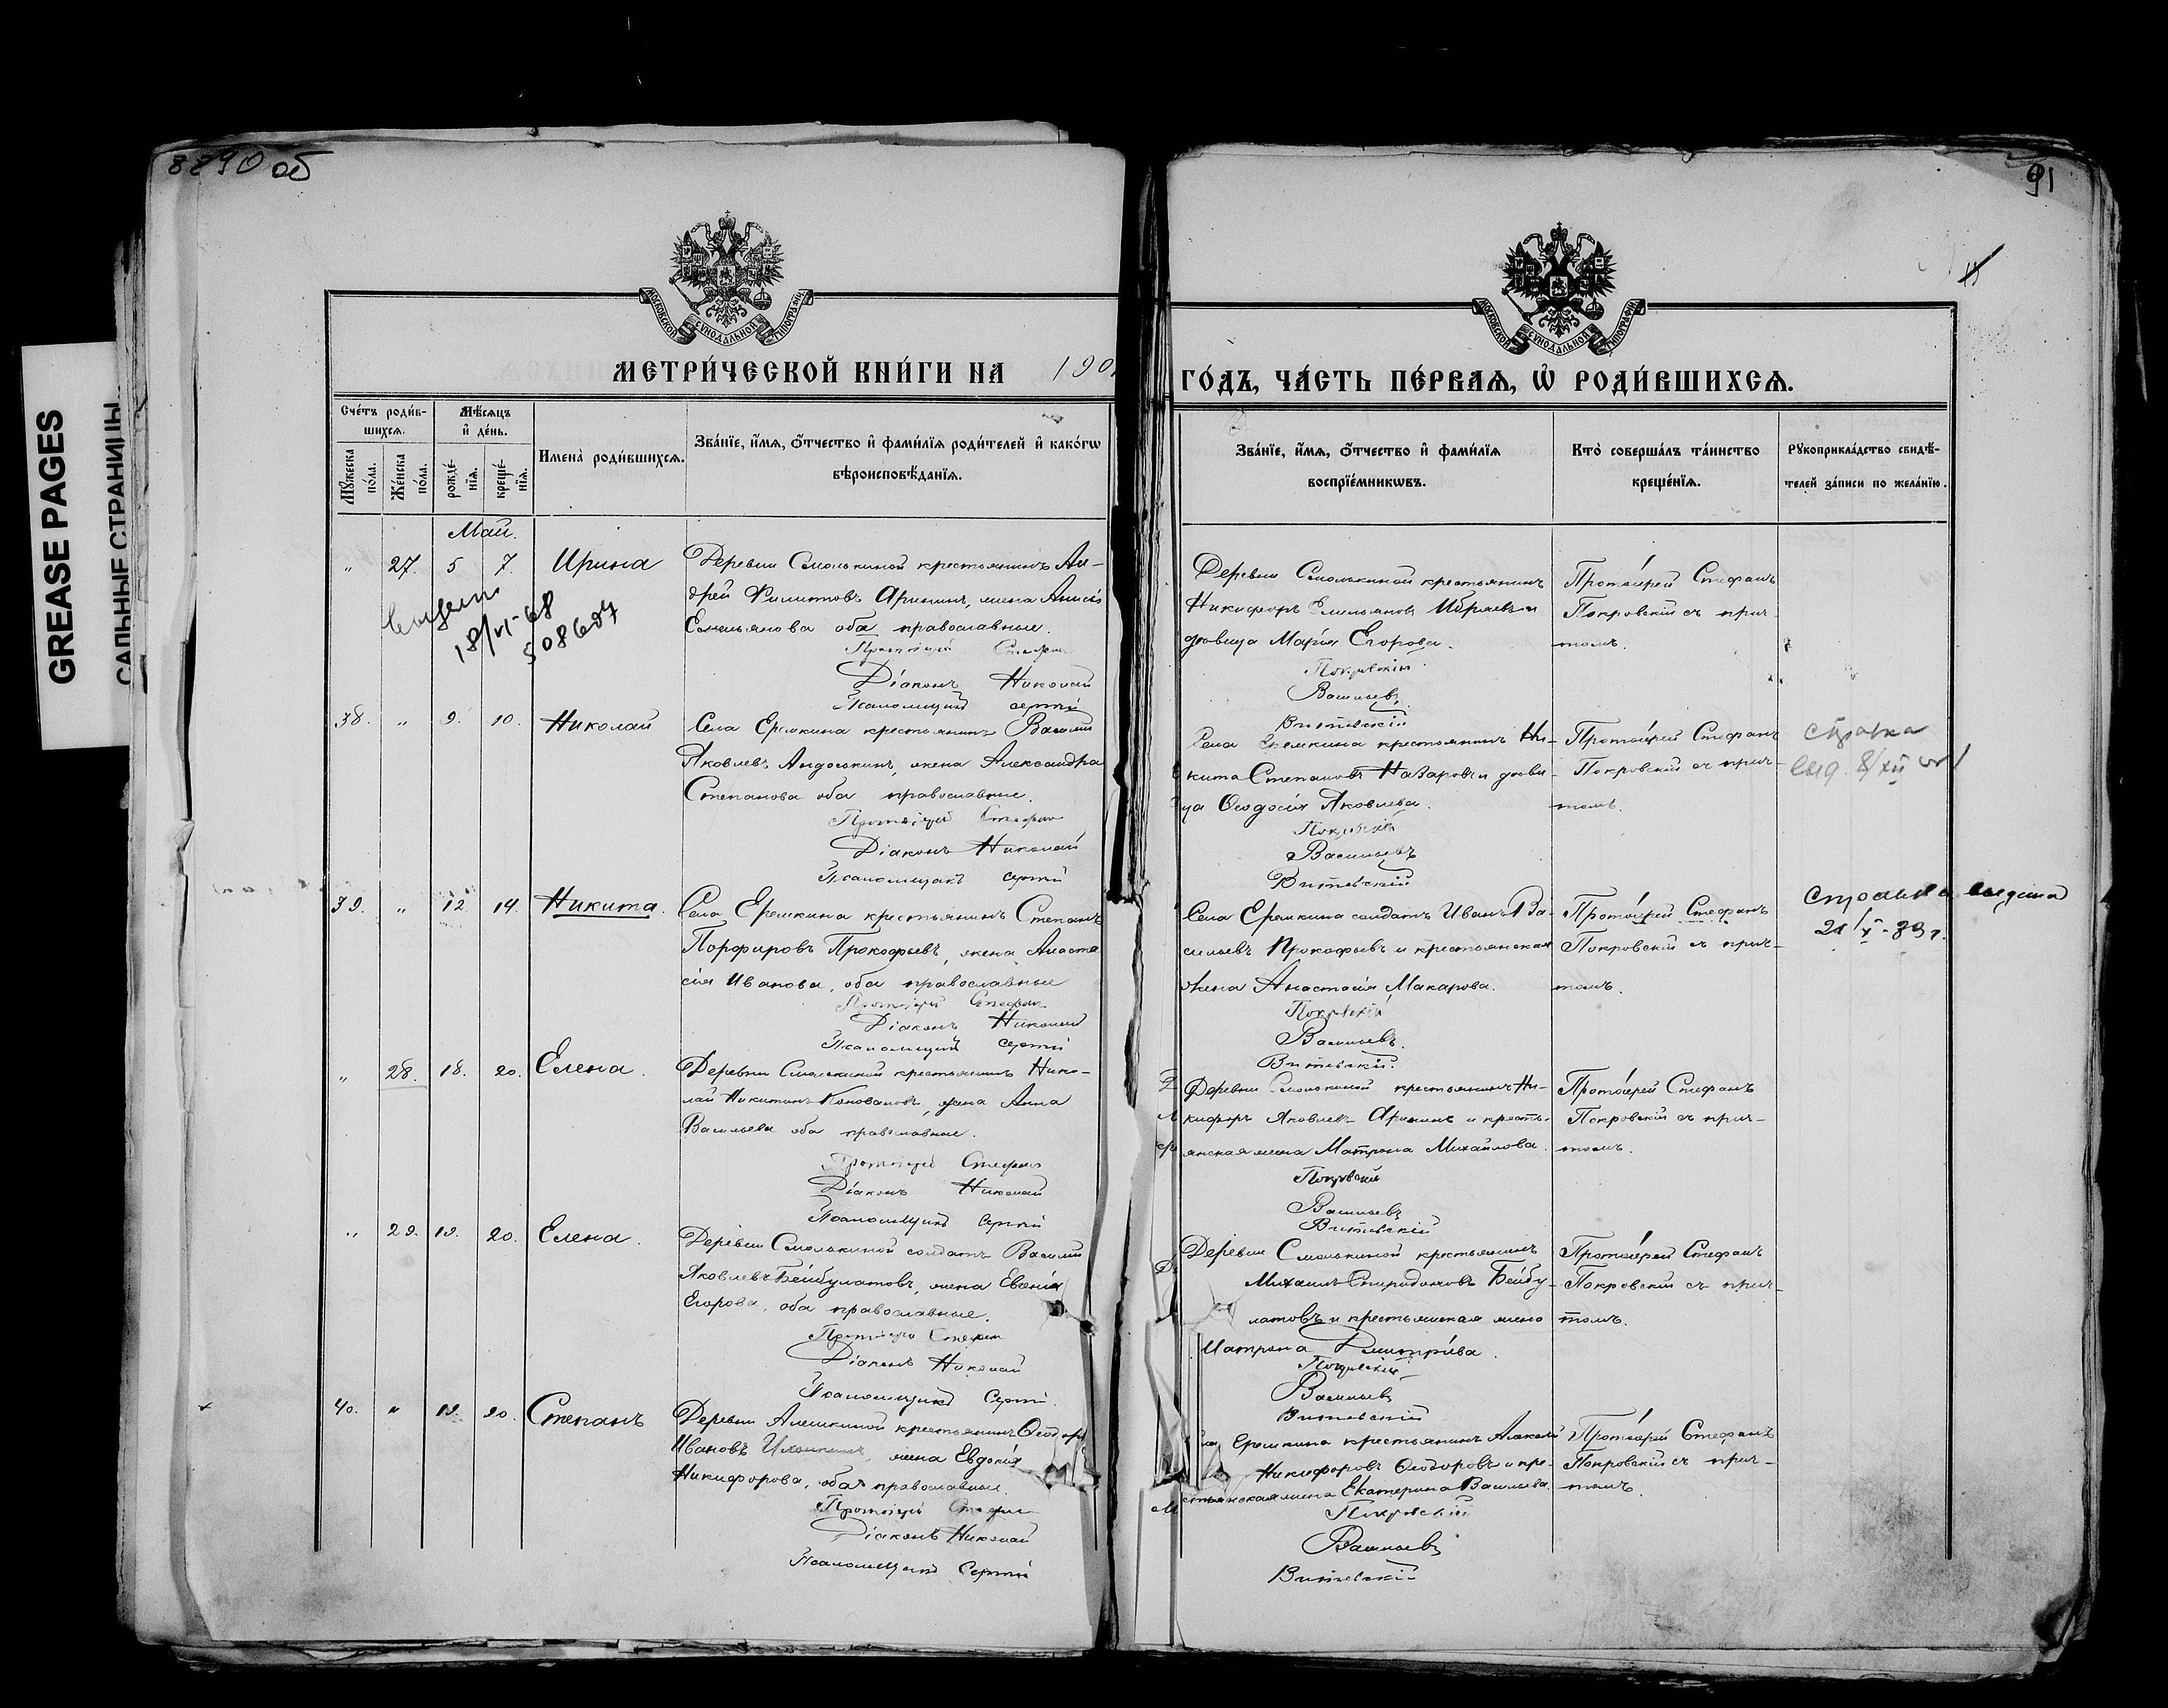 8890 об
91
GREASE PAGES
САЛЬНЫЕ СТРАНИЦЫ
МОСКОВСКОЙ СѴНОДАЛЬНОЙ ТИПОГРАФІИ
МОСКОВСКОЙ СѴНОДАЛЬНОЙ ТИПОГРАФІИ
МЕТРИ́ЧЕСКОЙ КНИ́ГИ НА 190
ГО́ДЪ, ЧА́СТЬ ПЕ́РВАѦ, Ѡ҆ РОДИ́ВШИХСѦ.
Сче́тъ роди́в-
шихсѧ.
Мꙋ́жеска по́ла.
Же́нска по́ла.
Мѣ́сѧцъ
и҆ де́нь.
рожде́-нїѧ.
креще́-нїѧ.
Имена̀ роди́вшихсѧ.
Зва́нїе, и҆́мѧ, ѻ҆́тчество и҆ фами́лїѧ роди́телей и҆ како́гѡ
вѣроисповѣ́данїѧ.
Зва́нїе, и҆́мѧ, ѻ҆́тчество и҆ фами́лїѧ
воспрїе́мникѡвъ.
Кто̀ соверша́лъ та́инство
креще́нїѧ.
Рꙋкоприкла́дство свидѣ́-
телей за́писи по жела́нїю.
Май.
" 27. 5 7 Ирина
Деревни Смолькиной крестьянинъ Ан-
дрей Филиповъ Аринин, жена Анисія
Емельянова оба православные.
Протоіерей Стефан
Діаконъ Николай
Псаломщикъ Сергій
18/VI-68
508607
Деревни Смолькиной крестьянинъ
Никифоръ Емельянов и
девица Марія Егорова.
Покровскій
Васильевъ
Витевскій
Протоіерей Стефанъ
Покровскій съ прич-
томъ.
38. " 9. 10. Николай
Села Еремкина крестьянинъ Василій
Яковлевъ Андоськинъ, жена Александра
Степанова оба православные.
Протоіерей Стефан
Діаконъ Николай
Псаломщикъ Сергій
Села Еремкина крестьянинъ Ни-
кита Степановъ Назаровъ и деви-
ца Ѳеодосія Яковлева.
Покровскій
Васильевъ
Витевскій
Протоіерей Стефанъ
Покровскій съ прич-
томъ.
справка
выд. 8/XII
39. " 12 14. Никита.
Села Еремкина крестьянинъ Степанъ
Порфировъ Прокофьевъ, жена Анаста
сія Иванова, оба православные
Протоіерей Стефан
Діаконъ Николай
Псаломщикъ Сергій
Села Еремкина солдатъ Иванъ Ва-
сильевъ Прокофьевъ и крестьянская
жена Анастасія Макарова.
Покровскій
Васильевъ.
Витевскій.
Протоіерей Стефанъ
Покровскій съ прич-
томъ.
справка выдана
21/X-89г.
" 28. 18. 20. Елена.
Деревни Смолькиной крестьянинъ Нико-
лай Никитинъ Коноваловъ, жена Анна
Васильева оба православные.
Протоіерей Стефан
Діаконъ Николай
Псаломщикъ Сергій
Деревни Смолькиной крестьянинъ Ни-
кифоръ Яковлевъ Аринин и кресть-
янская жена Матрона Михайлова.
Покровскій
Васильевъ
Витевскій
Протоіерей Стефанъ
Покровскій съ прич-
томъ.
" 29. 19. 20. Елена.
Деревни Смолькиной солдатъ Василій
Яковлевъ Бейбулатовъ, жена Евгенія
Егорова, оба православные.
Протоіерей Стефан
Діаконъ Николай
Псаломщикъ Сергій.
Деревни Смолькиной крестьянинъ
Михаилъ Спиридоновъ Бейбу-
латовъ и крестьянская жена
Матрона Дмитріева.
Покровскій
Васильевъ
Витевскій
Протоіерей Стефанъ
Покровскій съ прич-
томъ.
40. " 19. 20. Степанъ
Деревни Алешкиной крестьянинъ Ѳеодоръ
Ивановъ жена Евдокія
Никифорова, оба православные.
Протоіерей Стефан
Діаконъ Николай
Псаломщикъ Сергій
Еремкина крестьянинъ Алексѣй
Никифоровъ Ѳеодоровъ и кре-
стьянская жена Екатерина Васильева.
Покровскій
Васильевъ
Витевскій
Протоіерей Стефанъ
Покровскій съ прич-
томъ.